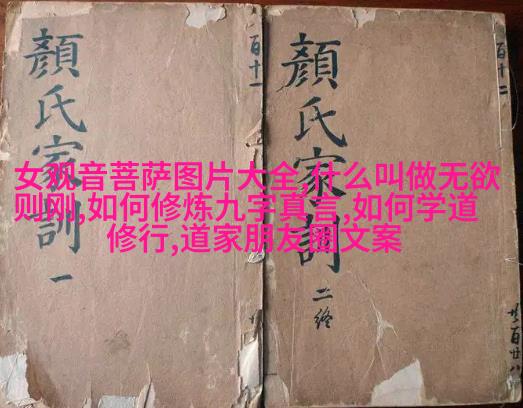 顏氏家訓 一
顏氏家訓 二終
百十一
百十二
女观音菩萨图片大全,什么叫做无欲
则刚,如何修炼九字真言,如何学道
修行,道家朋友圈文案